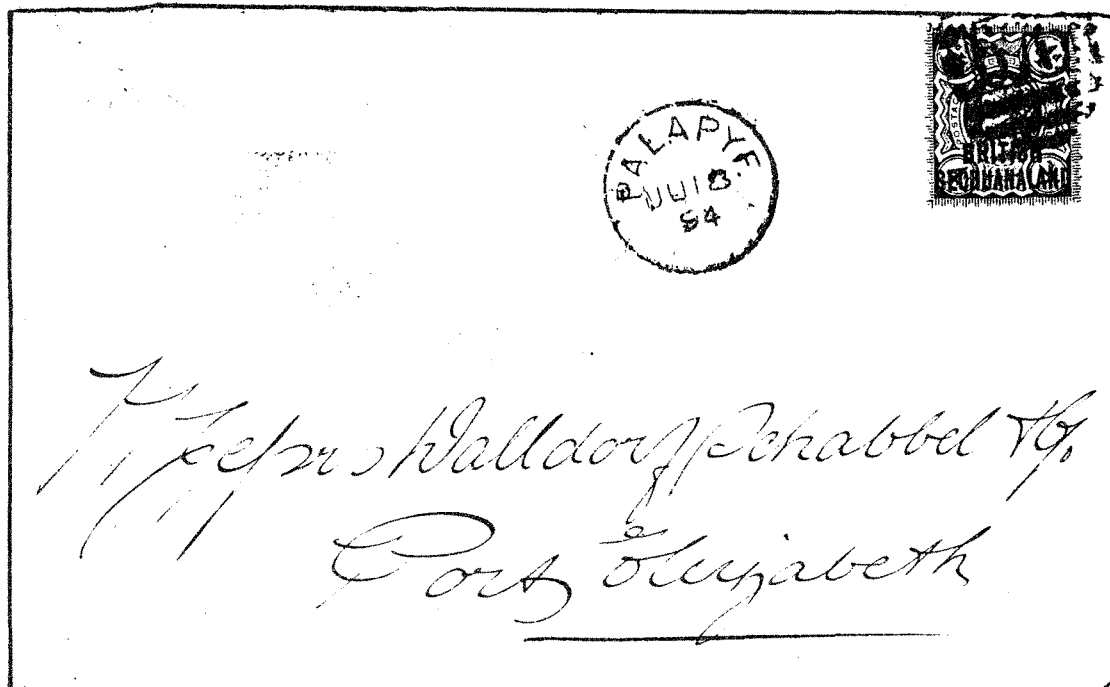 PALAPYE
JU 18
94
POSTAGE
BRITISH
BECHUANALAND
Messrs Walldorf Schabbel & Co.
Port Elizabeth